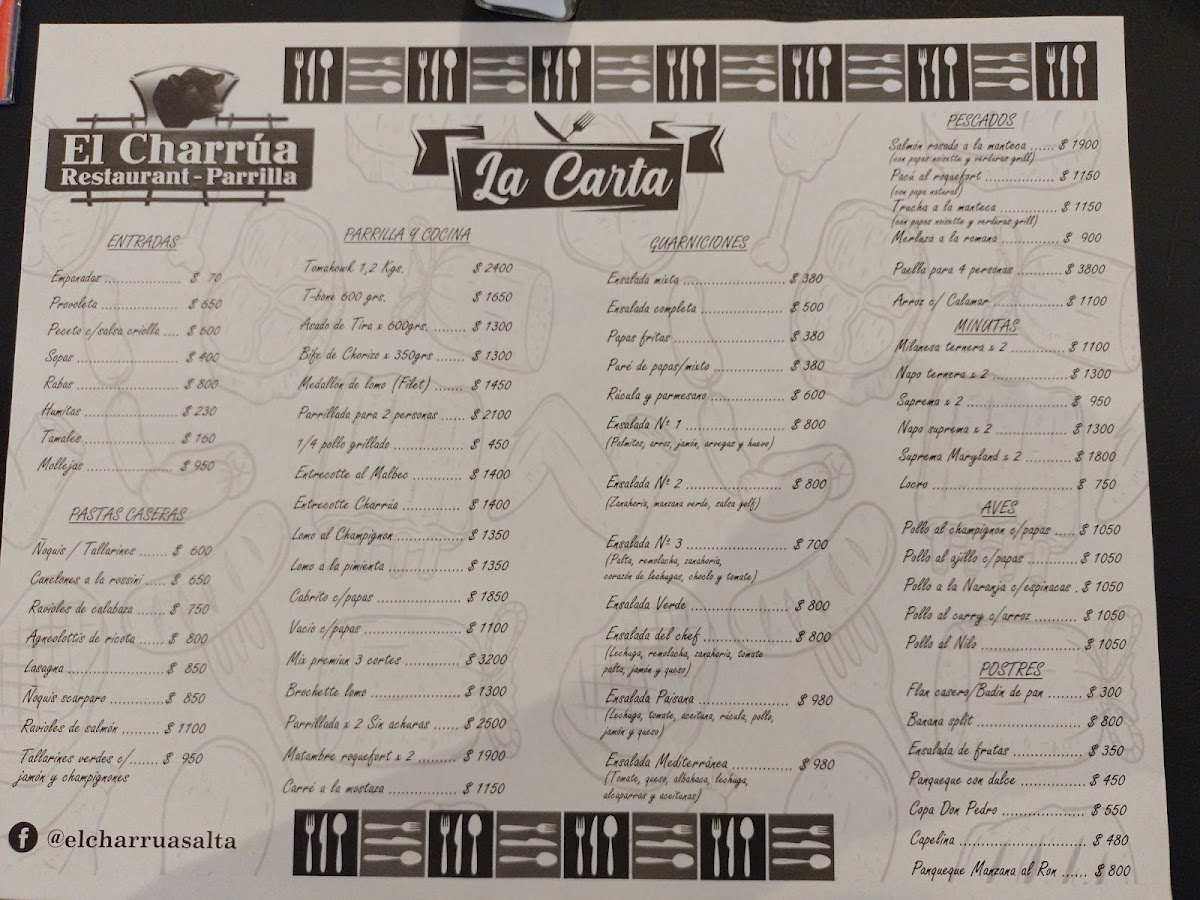 El Charrúa
Restaurant - Parrilla
La Carta
ENTRADAS
Empanadas ..................... $ 70
Provoleta ..................... $ 650
Peceto c/salsa criolla .... $ 600
Sopas ..................... $ 400
Rabas ..................... $ 800
Humitas ..................... $ 230
Tamales ..................... $ 160
Mollejas ..................... $ 950
PASTAS CASERAS
Ñoquis / Tallarines ....... $ 600
Canelones a la rossini ..... $ 650
Ravioles de calabaza ....... $ 750
Agneolottis de ricota ...... $ 800
Lasagna ..................... $ 850
Ñoquis scarparo ............. $ 850
Ravioles de salmón ......... $ 1100
Tallarines verdes c/....... $ 950
jamón y champignones
@elcharruasalta
PARRILLA Y COCINA
Tomahowk 1,2 Kgs. $ 2400
T-bone 600 grs. $ 1650
Asado de Tira x 600grs. ........ $ 1300
Bife de Chorizo x 350grs ....... $ 1300
Medallón de lomo (Filet) ....... $ 1450
Parrillada para 2 personas ...... $ 2100
1/4 pollo grillado ................ $ 450
Entrecotte al Malbec ............. $ 1400
Entrecotte Charrúa ............... $ 1400
Lomo al Champignon ............... $ 1350
Lomo a la pimienta ............... $ 1350
Cabrito c/papas .................. $ 1850
Vacio c/papas .................... $ 1100
Mix premiun 3 cortes ............. $ 3200
Brochette lomo ................... $ 1300
Parrillada x 2 Sin achuras ....... $ 2500
Matambre roquefort x 2 ......... $ 1900
Carré a la mostaza ............... $ 1150
GUARNICIONES
Ensalada mixta ..................... $ 380
Ensalada completa .................. $ 500
Papas fritas ..................... $ 380
Puré de papas/mixto ................ $ 380
Rúcula y parmesano ................. $ 600
Ensalada Nº 1 ..................... $ 800
(Palmitos, arroz, jamón, arvegas y huevo)
Ensalada Nº 2 ..................... $ 800
(Zanahoria, manzana verde, salsa golf)
Ensalada Nº 3 ..................... $ 700
(Palta, remolacha, zanahoria,
corazón de lechugas, choclo y tomate)
Ensalada Verde ..................... $ 800
Ensalada del chef .................. $ 800
(Lechuga, remolacha, zanahoria, tomate
palta, jamón y queso)
Ensalada Paisana ................... $ 980
(Lechuga, tomate, aceituna, rúcula, pollo,
jamón y queso)
Ensalada Mediterránea ............ $ 980
(Tomate, queso, albahaca, lechuga,
alcaparras y aceitunas)
PESCADOS
Salmón rosado a la manteca ...... $ 1900
(con papas noisette y verduras grill)
Pacú al roquefort ................. $ 1150
(con papa natural)
Trucha a la manteca ............... $ 1150
(con papas noisette y verduras grill)
Merluza a la romana .............. $ 900
Paella para 4 personas ........... $ 3800
Arroz c/ Calamar .................. $ 1100
MINUTAS
Milanesa ternera x 2 ............. $ 1100
Napo ternera x 2 .................. $ 1300
Suprema x 2 ....................... $ 950
Napo suprema x 2 .................. $ 1300
Suprema Maryland x 2 ........... $ 1800
Locro ............................. $ 750
AVES
Pollo al champignon c/papas ..... $ 1050
Pollo al ajillo c/papas ........... $ 1050
Pollo a la Naranja c/espinacas . $ 1050
Pollo al curry c/arroz .......... $ 1050
Pollo al Nilo ..................... $ 1050
POSTRES
Flan casero/Budin de pan ........ $ 300
Banana split ..................... $ 800
Ensalada de frutas ................ $ 350
Panqueque con dulce ............... $ 450
Copa Don Pedro .................... $ 550
Capelina .......................... $ 480
Panqueque Manzana al Ron ...... $ 800